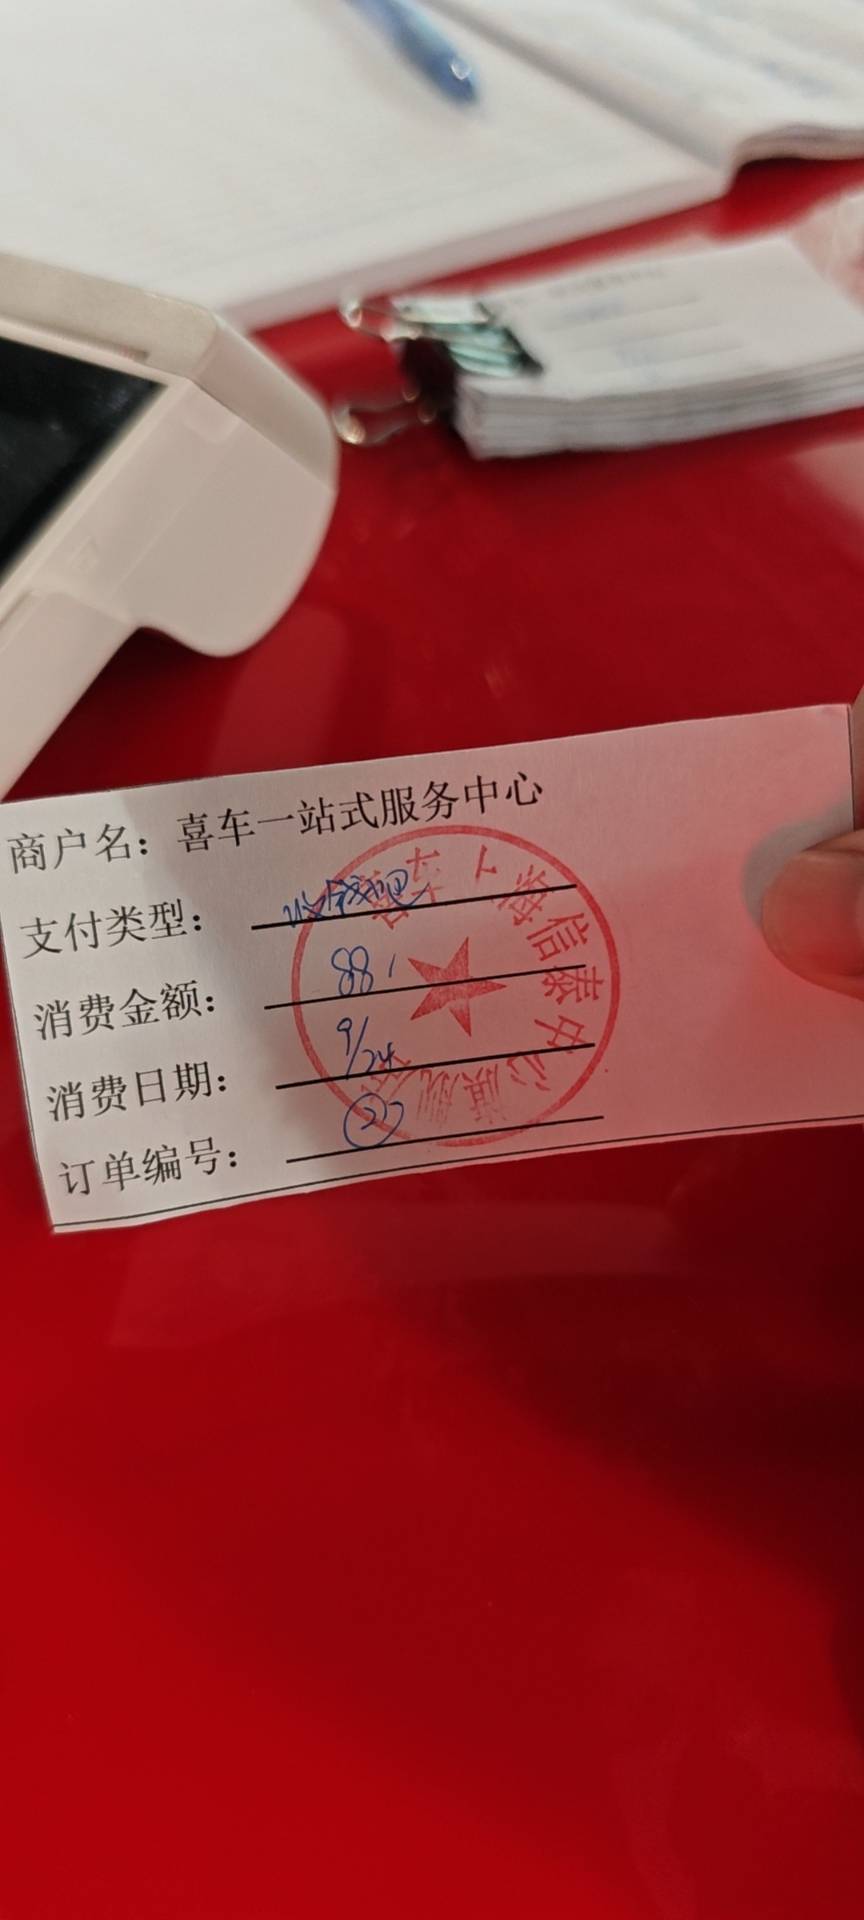 商户名：喜车一站式服务中心
支付类型：收钱吧
消费金额：88
消费日期：9/24
订单编号：②
喜车上海信泰中心旗舰店